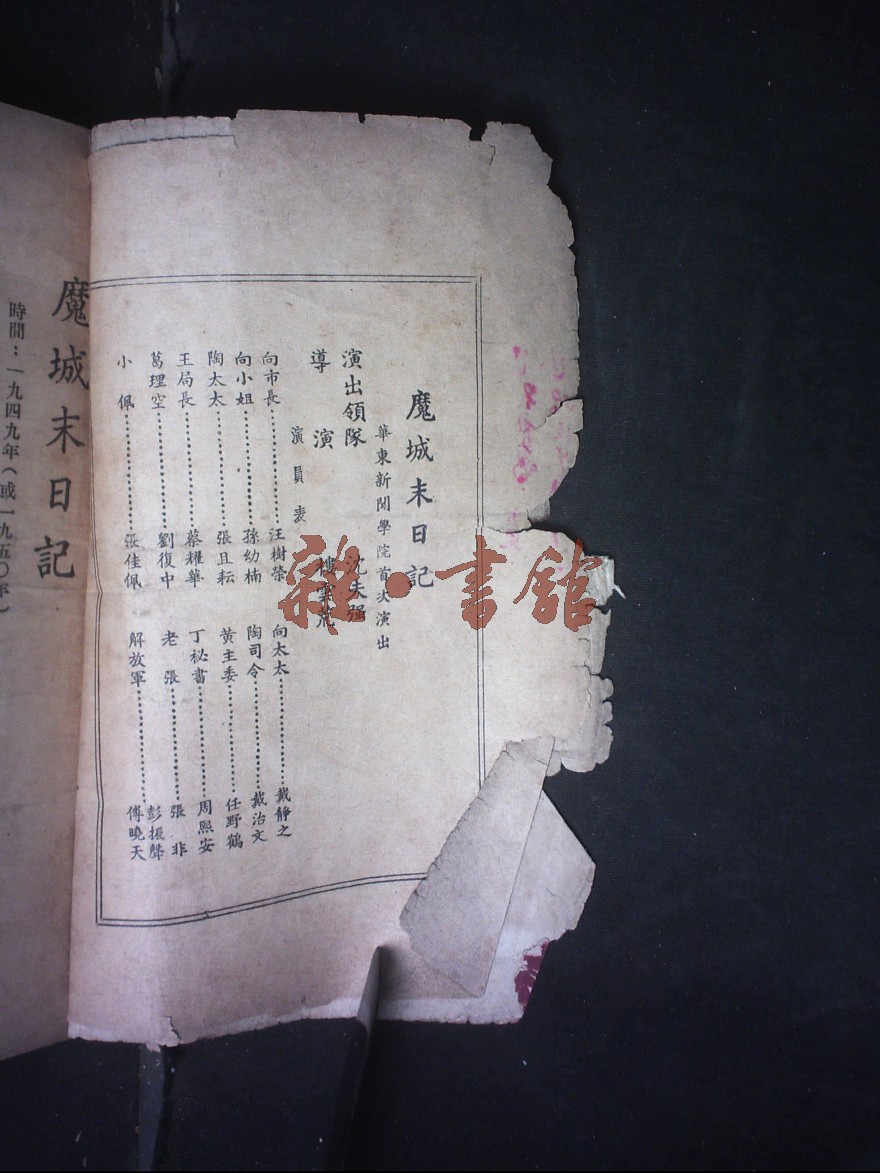 魔城末日記
華東新聞學院首次演出
演出領隊 沈夫强
導演 樓雲
演員表
向市長……汪樹榮
向太太……戴靜之
向小姐……孫幼楠
陶司令……戴治文
陶太太……張且耘
黃主委……任野鶴
王局長……蔡耀華
丁祕書……周熙安
葛理空……劉復中
老張……張非
彭振聲
小佩……張佳佩
解放軍……傅曉天
魔城末日記
時間：一九四九年（或一九五〇年）
雜·書館